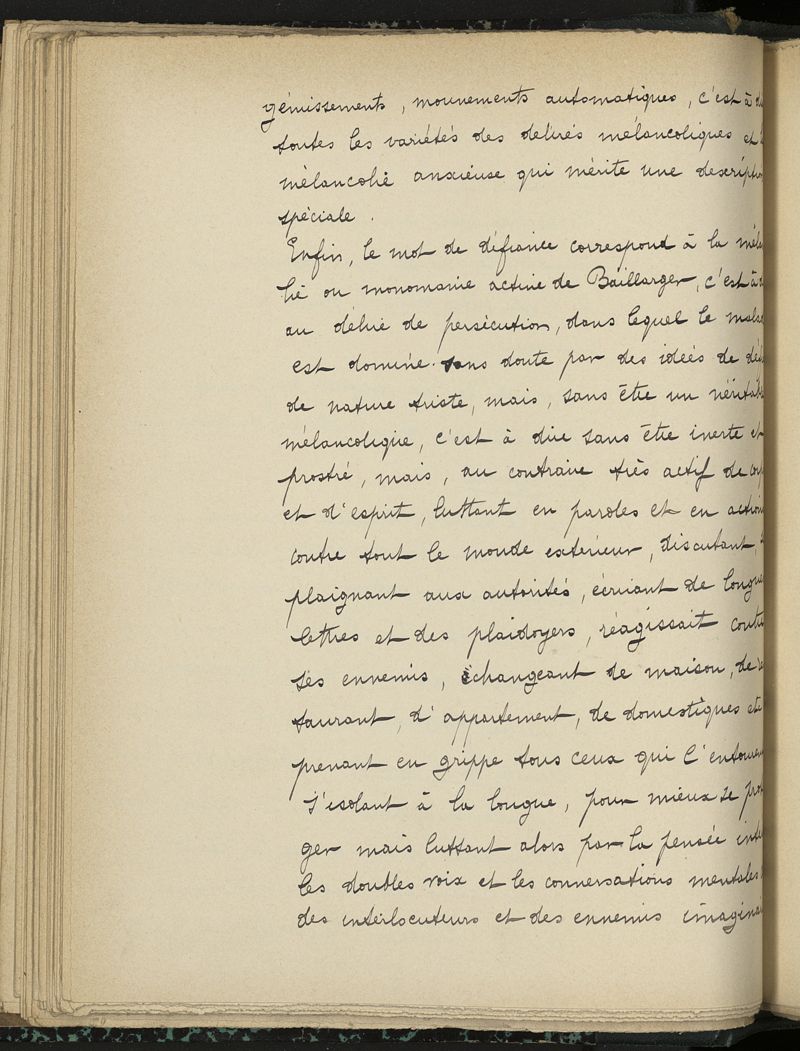 gémissements, mouvements automatiques, c'est à di
toutes les variétés des délires mélancoliques et l
mélancolie anxieuse qui mérite une descriptio
spéciale.
Enfin, le mot de défiance correspond à la méla
lie ou monomanie active de Baillarger, c'est à d
au délire de persécution, dans lequel le malad
est dominé sans doute par des idées de déf
de nature triste, mais, sans être un véritabl
mélancolique, c'est à dire sans être inerte et
prostré, mais, au contraire très actif de corp
et d'esprit, luttant en paroles et en action
contre tout le monde extérieur, discutant, s
plaignant aux autorités, écrivant de longue
lettres et des plaidoyers, réagissait contr
ses ennemis, échangeant de maison, de re
taurant, d'appartement, de domestiques etc
prenant en grippe tous ceux qui l'entouren
s'isolant à la longue, pour mieux se prot
ger mais luttant alors par la pensée inté
les doubles voix et les conversations mentales
des interlocuteurs et des ennemis imaginai